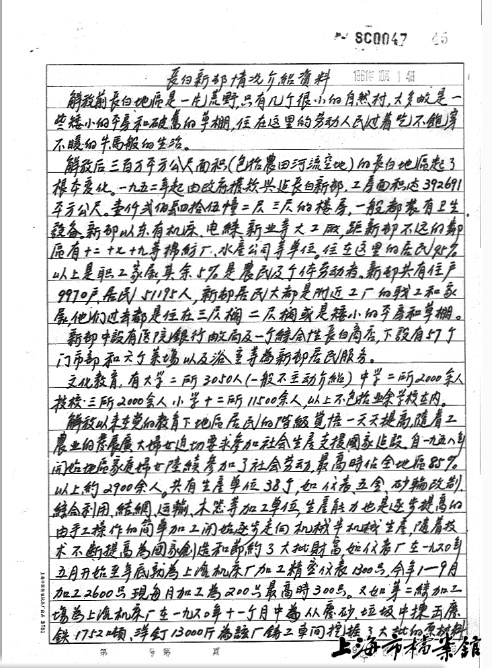 SC0047 45
1961年10月14日
長白新邨情况介紹資料
解放前長白地區是一片荒野,只有几个很小的自然村,大多数是一
些矮小的平房和破舊的草棚,住在这里的劳动人民过着吃不飽穿
不暖的牛馬般的生活。
解放后三百万平方公尺面积(包括農田河流空地)的長白地區起了
根本变化。一九五二年起由政府撥款兴建長白新邨,工房面积达392691
平方公尺。壹仟貳佰 拾伍幢二层三层的楼房,一般都裝有卫生
設备。新邨以东有机床、电綫、新业等大工廠,距新邨不远的鄰
區有十二十七十九等棉紡厂、水產公司等单位。住在这里的居民95%
以上是职工家屬,其余5%是農民及个体劳动者。新邨共有住户
9970户,居民51195人,新邨居民大都是附近工厂的职工和家
屬,他们过去都是住在三层楼二层楼或是矮小的平房和草棚。
新邨中設有医院銀行邮局及一个綜合性長白商店,下設有57个
门市部和六个菜場以及浴室等为新邨居民服务。
文化教育,有大学二所3050人(一般不主动介紹)中学二所2000余人
技校三所2000余人小学十二所11500余人,以上不包括业余学校在内。
解放以来在党的教育下地區居民的階級覚悟一天天提高,随着工
農业的發展廣大婦女迫切要求参加社会生產支援國家建設,自一九五八年
开始地區家庭婦女陸續参加了社会劳动,最高時佔全地區85%
以上約2900余人。共有生產单位38个,如仪表、五金、砂輪改制、
綜合利用、結網、运輸、木器等加工单位,生產能力也是逐步提高的
由手工操作的简单加工开始逐步走向机械半机械生產,随着技
术不断提高为國家創造和节約了大批財富,如仪表厂在一九六〇年
五月开始至年底新为上海机床厂加工精密仪表1300只,今年1—9月
加工2600只,現每月加工为200只最高時300只。又如第二綫加工
場为上海机床厂在一九六〇年十一个月中为从廢砂垃圾中揀五廢
鉄1752噸,洋釘13000斤为該厂鑄工車间挖掘了大批的原材料
第 号 第 頁
上海市檔案館